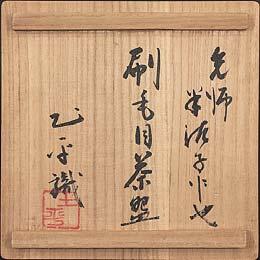 先師 半泥子作也
刷毛目茶盌
土平識